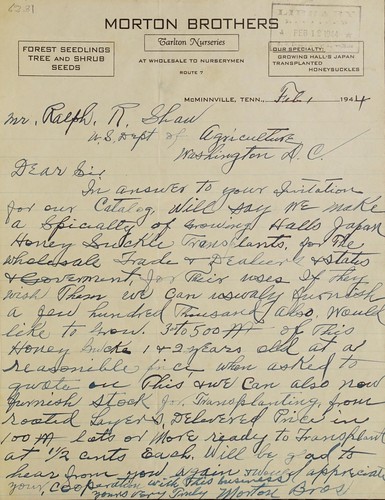 6231
MORTON BROTHERS
Tarlton Nurseries
AT WHOLESALE TO NURSERYMEN
ROUTE 7
FOREST SEEDLINGS
TREE AND SHRUB
SEEDS
LIBRARY
FEB 15 1944
OUR SPECIALTY:
GROWING HALL'S JAPAN
TRANSPLANTED
HONEYSUCKLES
McMINNVILLE, TENN., Feb, 1 1944
Mr. Ralph. R. Shaw
U. S. Dept of Agriculture
Washington D. C.
Dear Sir
In answer to your invitation
for our Catalog, Will Say We make
a Specialty of Growing Halls Japan
Honey Suckle Transplants, for The
Wholesale Trade & Dealers & States
& Goverment, for Their uses If they
wish Them we Can usually furnish
a few hundred Thousand, also, Would
like to Grow. 3 to 500 M of This
Honey Suckle 1 & 2 years old at a
reasonible Price, when asked to
quote on This & we Can also now
furnish Stock for Transplanting, from
rooted Layers, Delivered Price in
100 M lots or More ready to Transplant
at 1/2 cents Each. Will be glad to
hear from you again & would appreciate
your Cooperation with This business
yours very Truly Morton Bros